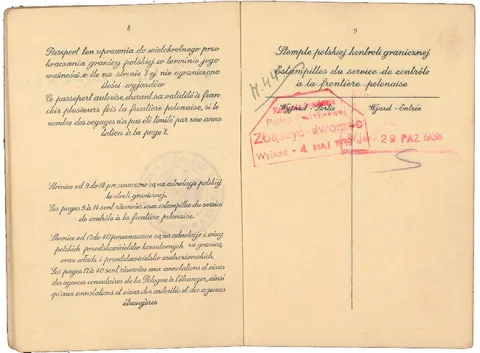 8
Paszport ten uprawnia do wielokrotnego prze-
kraczania granicy polskiej w terminie jego
ważności, o ile na stronie 7-ej nie ograniczono
ilości wyjazdów
Ce passeport autorise, durant sa validité à fran-
chir plusieurs fois la frontière polonaise, si le
nombre des voyages n'a pas été limité par une anno
tation à la page 7.
Stronice od 9 do 14 przeznaczone są na adnotacje polskiej
kontroli granicznej.
Les pages 9 à 14 sont réservées aux estampilles du service
de contrôle à la frontière polonaise.
Stronice od 17 do 40 przeznaczone są na adnotacje i wizy
polskich przedstawicielstw konsularnych za granicą
oraz władz i przedstawicielstw cudzoziemskich.
Les pages 17 à 40 sont réservées aux annotations et visas
des agences consulaires de la Pologne à l'étranger, ainsi
qu'aux annotations et visas des autorités et des agences
étrangères
9
Stemple polskiej kontroli granicznej
Estampilles du service de contrôle
à la frontière polonaise
Wyjazd - Sortie
Wjazd - Entrée
Zbąszyń-dworzec
Wyjazd - 4. MAJ 1938
29 PAŹ 1938